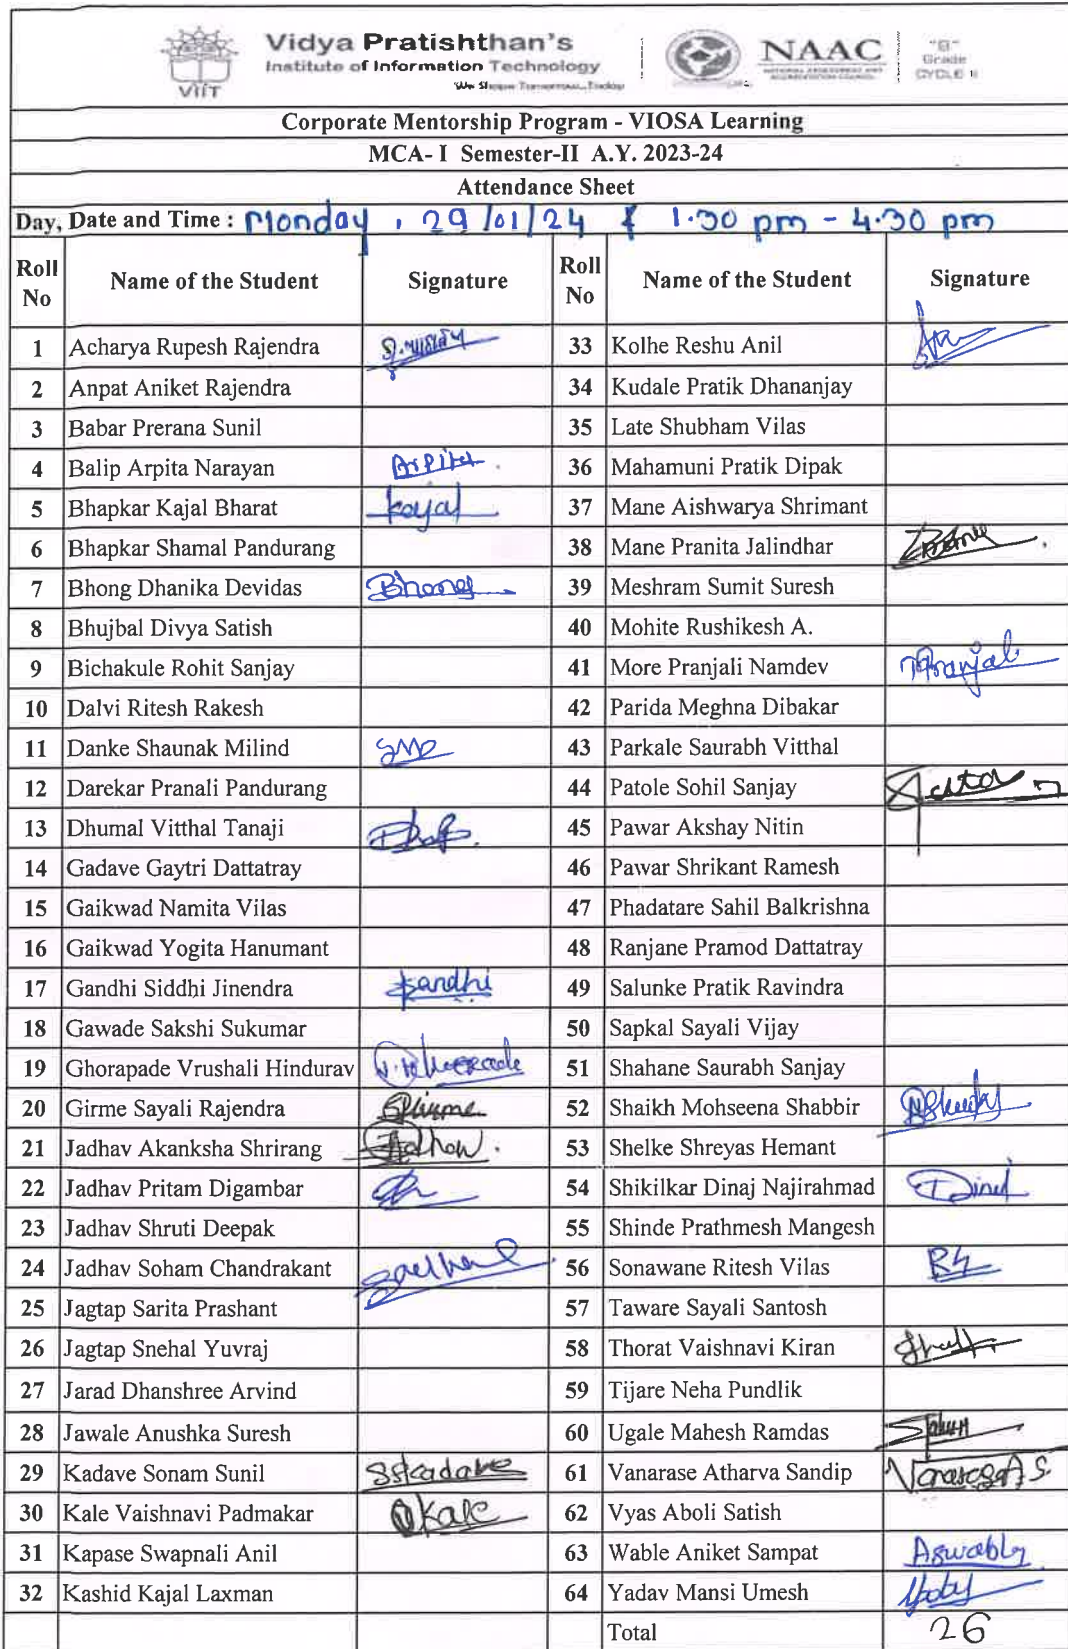 Vidya Pratishthan's
Institute of Information Technology
VIIT
NAAC
"B"
Grade
CYCLE II
Corporate Mentorship Program - VIOSA Learning
MCA- I Semester-II A.Y. 2023-24
Attendance Sheet
Day, Date and Time : Monday , 29/01/24 1.30 pm - 4.30 pm
Roll No Name of the Student Signature Roll No Name of the Student Signature
1 Acharya Rupesh Rajendra 33 Kolhe Reshu Anil
2 Anpat Aniket Rajendra 34 Kudale Pratik Dhananjay
3 Babar Prerana Sunil 35 Late Shubham Vilas
4 Balip Arpita Narayan Arpita 36 Mahamuni Pratik Dipak
5 Bhapkar Kajal Bharat kajal 37 Mane Aishwarya Shrimant
6 Bhapkar Shamal Pandurang 38 Mane Pranita Jalindhar
7 Bhong Dhanika Devidas Bhong 39 Meshram Sumit Suresh
8 Bhujbal Divya Satish 40 Mohite Rushikesh A.
9 Bichakule Rohit Sanjay 41 More Pranjali Namdev Pranjali
10 Dalvi Ritesh Rakesh 42 Parida Meghna Dibakar
11 Danke Shaunak Milind 43 Parkale Saurabh Vitthal
12 Darekar Pranali Pandurang 44 Patole Sohil Sanjay
13 Dhumal Vitthal Tanaji 45 Pawar Akshay Nitin
14 Gadave Gaytri Dattatray 46 Pawar Shrikant Ramesh
15 Gaikwad Namita Vilas 47 Phadatare Sahil Balkrishna
16 Gaikwad Yogita Hanumant 48 Ranjane Pramod Dattatray
17 Gandhi Siddhi Jinendra Gandhi 49 Salunke Pratik Ravindra
18 Gawade Sakshi Sukumar 50 Sapkal Sayali Vijay
19 Ghorapade Vrushali Hindurav 51 Shahane Saurabh Sanjay
20 Girme Sayali Rajendra 52 Shaikh Mohseena Shabbir
21 Jadhav Akanksha Shrirang 53 Shelke Shreyas Hemant
22 Jadhav Pritam Digambar 54 Shikilkar Dinaj Najirahmad
23 Jadhav Shruti Deepak 55 Shinde Prathmesh Mangesh
24 Jadhav Soham Chandrakant 56 Sonawane Ritesh Vilas
25 Jagtap Sarita Prashant 57 Taware Sayali Santosh
26 Jagtap Snehal Yuvraj 58 Thorat Vaishnavi Kiran
27 Jarad Dhanshree Arvind 59 Tijare Neha Pundlik
28 Jawale Anushka Suresh 60 Ugale Mahesh Ramdas
29 Kadave Sonam Sunil SSKadave 61 Vanarase Atharva Sandip Vanarase A S.
30 Kale Vaishnavi Padmakar Vkale 62 Vyas Aboli Satish
31 Kapase Swapnali Anil 63 Wable Aniket Sampat Aswable
32 Kashid Kajal Laxman 64 Yadav Mansi Umesh
Total 26